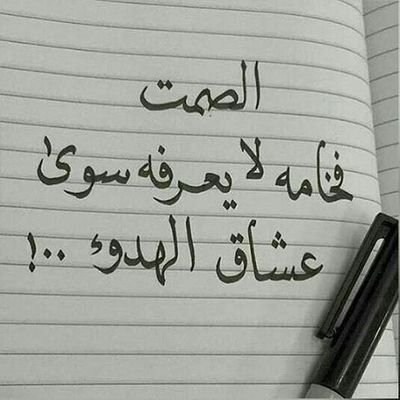 الصمت
فخامه لا يعرفه سوى
عشاق الهدوء ..!